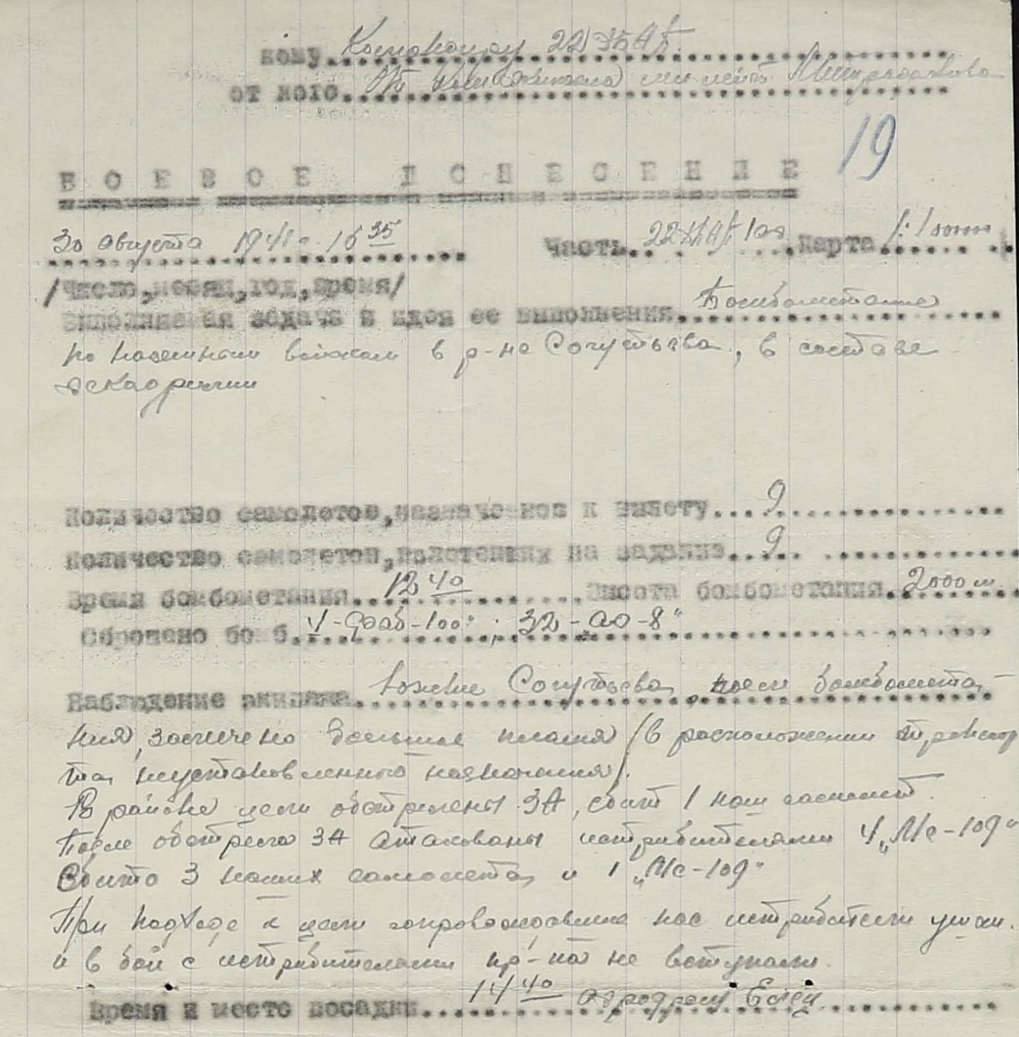 кому Командиру 22 ДБАП.
от кого от
19
БОЕВОЕ ДОНЕСЕНИЕ
30 августа 1941 г. 16 35 Часть 22 ДБАП Карта
/Число,месяц,год,время/
Выполняемая задача и идея ее выполнения Бомбометание
по наземным войскам в р-не, в составе
эскадрилии
Количество самолетов,назначенное к вылету 9
Количество самолетов,вылетевших на задание 9
Время бомбометания 12 40 Высота бомбометания 2000 м
Сброшено бомб ФАБ-100"; 32-ао-8"
Наблюдение экипажа после бомбомета-
ния, замечено большое пламя /в расположении транспор
та, неустановленного назначения/.
В районе цели обстреляны ЗА, сбит 1 наш самолет.
После обстрела ЗА атакованы истребителями 4 „Ме-109"
Сбито 3 наших самолета и 1 „Ме-109"
При подходе к цели сопровождавшие нас истребители ушли.
и в бой с истребителями пр-ка не вступали.
Время и место посадки 14 40 аэродром Елец